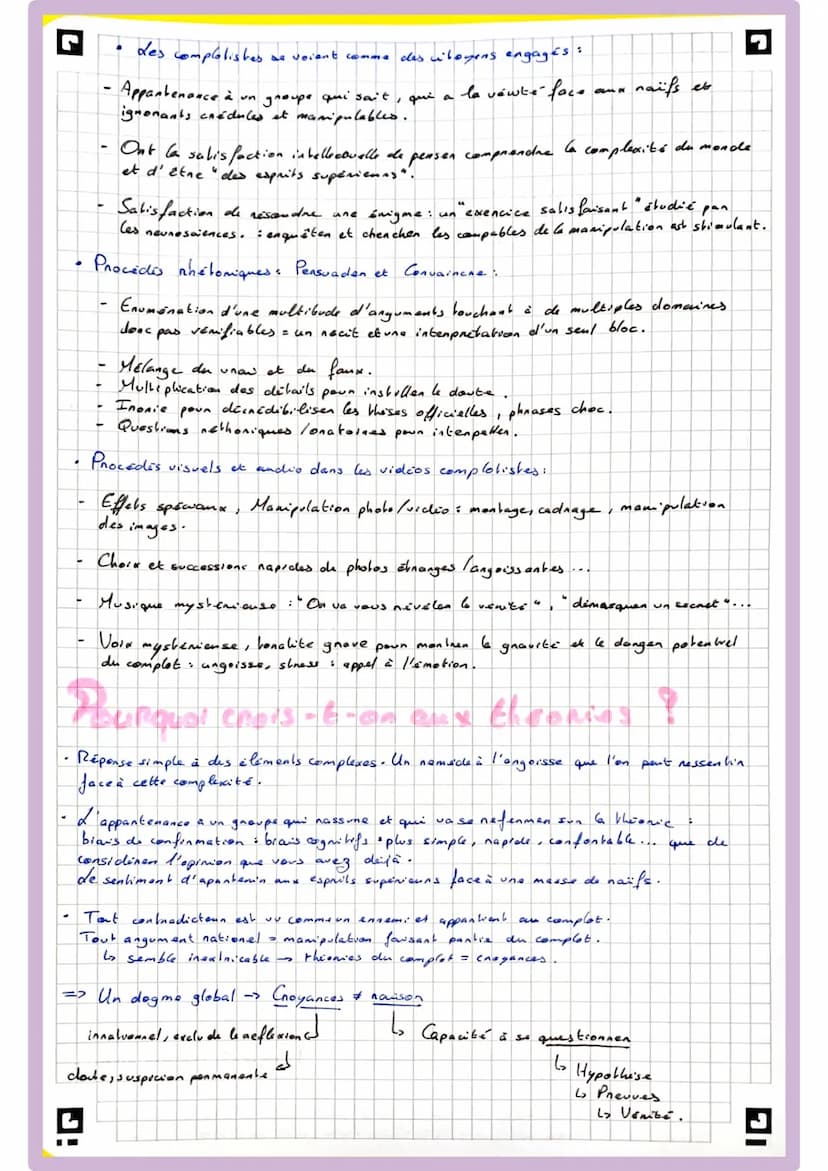 • Les complotistes se voient comme des citoyens engagés :
- Appartenance à un groupe qui sait, qui a la vérité face aux naïfs et
ignorants crédules et manipulables.
- Ont la satisfaction intellectuelle de penser comprendre la complexité du monde
et d'être "des esprits supérieurs".
- Satisfaction de résoudre une énigme : un "exercice satisfaisant" étudié par
les neurosciences. : enquêter et chercher les coupables de la manipulation est stimulant.
• Procédés rhétoriques : Persuader et Convaincre :
- Enumération d'une multitude d'arguments touchant à de multiples domaines
donc pas vérifiables = un récit et une interprétation d'un seul bloc.
- Mélange du vrai et du faux.
- Multiplication des détails pour instiller le doute.
- Ironie pour décrédibiliser les thèses officielles, phrases choc.
- Questions réthoriques /oratoires pour interpeller.
• Procédés visuels et audio dans les vidéos complotistes :
- Effets spéciaux, Manipulation photo/vidéo : montage, cadrage, manipulation
des images.
- Choix et successions rapides de photos étranges /angoissantes ...
- Musique mystérieuse : "On va vous révéler la vérité", "démasquer un secret"...
- Voix mystérieuse, tonalité grave pour montrer la gravité et le danger potentiel
du complot : angoisse, stress : appel à l'émotion.
Pourquoi crois-t-on aux théories ?
• Réponse simple à des éléments complexes. Un remède à l'angoisse que l'on peut ressentir
face à cette complexité.
• L'appartenance à un groupe qui rassure et qui va se refermer sur la théorie :
biais de confirmation : biais cognitifs • plus simple, rapide, confortable... que de
considérer l'opinion que vous avez déjà.
Le sentiment d'apartenir aux esprits supérieurs face à une masse de naïfs.
• Tout contradicteur est vu comme un ennemi et appartient au complot.
Tout argument rationel = manipulation faisant partie du complot.
↳ semble inextricable → théories du complot = croyances.
=> Un dogme global → Croyances ≠ raison
irrationnel, exclu de la réflexion
↳ Capacité à se questionner
doute, suspicion permanente
↳ Hypothèse
↳ Preuves
↳ Vérité.